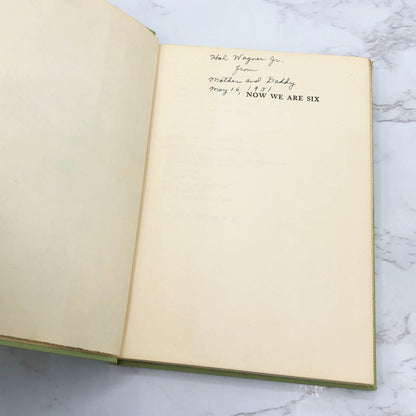 Hal Wagner Jr.
from
Mother and Daddy
May 16, 1951
NOW WE ARE SIX